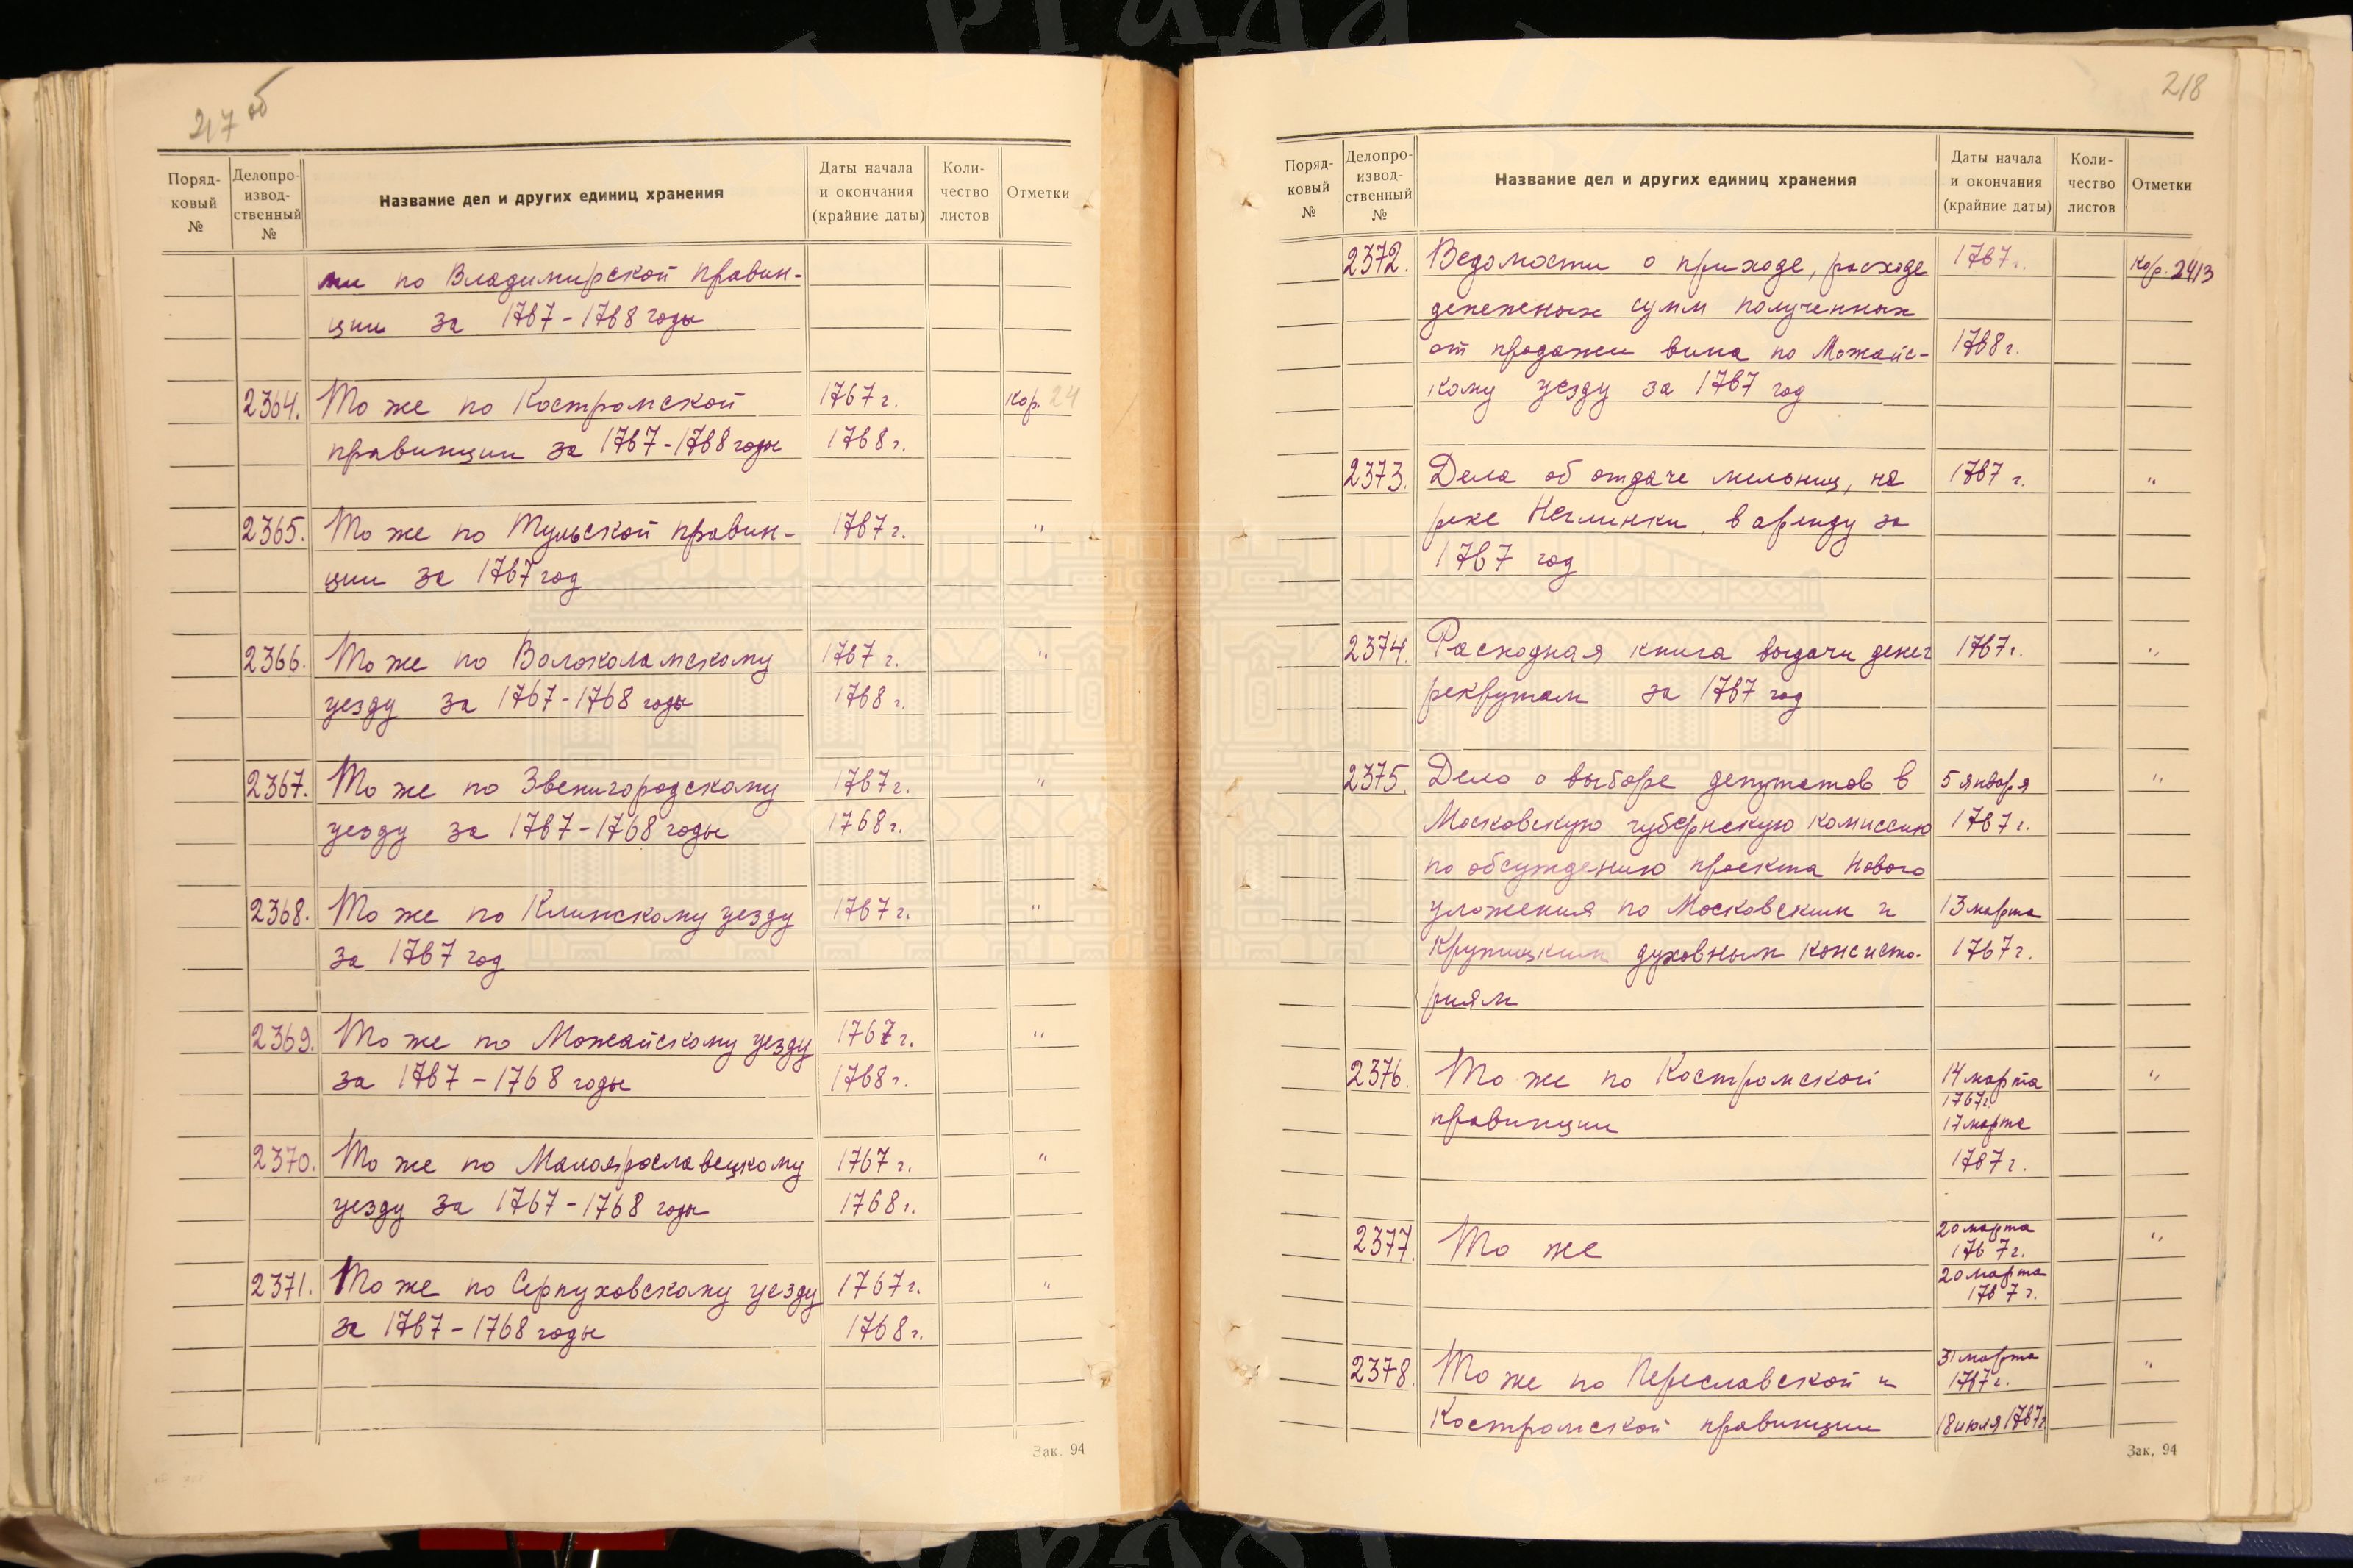 217 об
Поряд-
ковый
№
Делопро-
извод-
ственный
№
Название дел и других единиц хранения
Даты начала
и окончания
(крайние даты)
Коли-
чество
листов
Отметки
ми по Владимирской правин-
ции за 1767-1768 годы
2364. То же по Костромской 1767 г. Кор. 24
правинции за 1767-1768 годы 1768 г.
2365. То же по Тульской правин- 1767 г. "
ции за 1767 год
2366. То же по Волоколамскому 1767 г. "
уезду за 1767-1768 годы 1768 г.
2367. То же по Звенигородскому 1767 г. "
уезду за 1767-1768 годы 1768 г.
2368. То же по Клинскому уезду 1767 г. "
за 1767 год
2369. То же по Можайскому уезду 1767 г. "
за 1767-1768 годы 1768 г.
2370. То же по Малоярославецкому 1767 г. "
уезду за 1767-1768 годы 1768 г.
2371. То же по Серпуховскому уезду 1767 г. "
за 1767-1768 годы 1768 г.
Зак. 94
218
Поряд-
ковый
№
Делопро-
извод-
ственный
№
Название дел и других единиц хранения
Даты начала
и окончания
(крайние даты)
Коли-
чество
листов
Отметки
2372. Ведомости о приходе, расходе 1767г. Кор. 2413
денежных сумм полученных
от продажи вина по Можайс- 1768 г.
кому уезду за 1767 год
2373. Дела об отдаче мельниц, на 1767 г. "
реке Неглинки, в аренду за
1767 год
2374. Расходная книга выдачи денег 1767г. "
рекрутам за 1767 год
2375. Дело о выборе депутатов в 5 января "
Московскую губернскую комиссию 1767 г.
по обсуждению проекта Нового
уложения по Московским и 13 марта
Крутицким духовным консисто- 1767 г.
риям
2376. То же по Костромской 14 марта "
1767г.
правинции 17 марта
1767 г.
2377. То же 20 марта "
1767 г.
20 марта
1767 г.
2378. То же по Переславской и 31 марта "
1767 г.
Костромской правинции 18 июля 1767г
Зак. 94